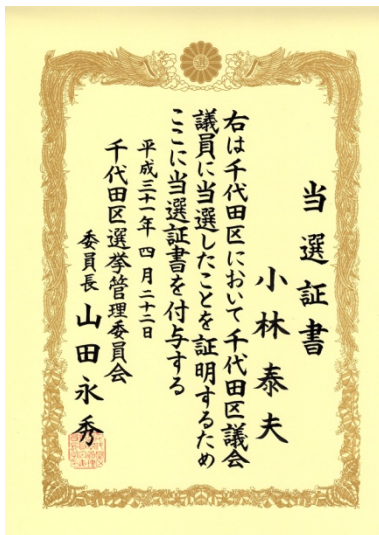 当選証書
小林泰夫
右は千代田区において千代田区議会
議員に当選したことを証明するため
ここに当選証書を付与する
平成三十一年四月二十二日
千代田区選挙管理委員会
委員長 山田永秀